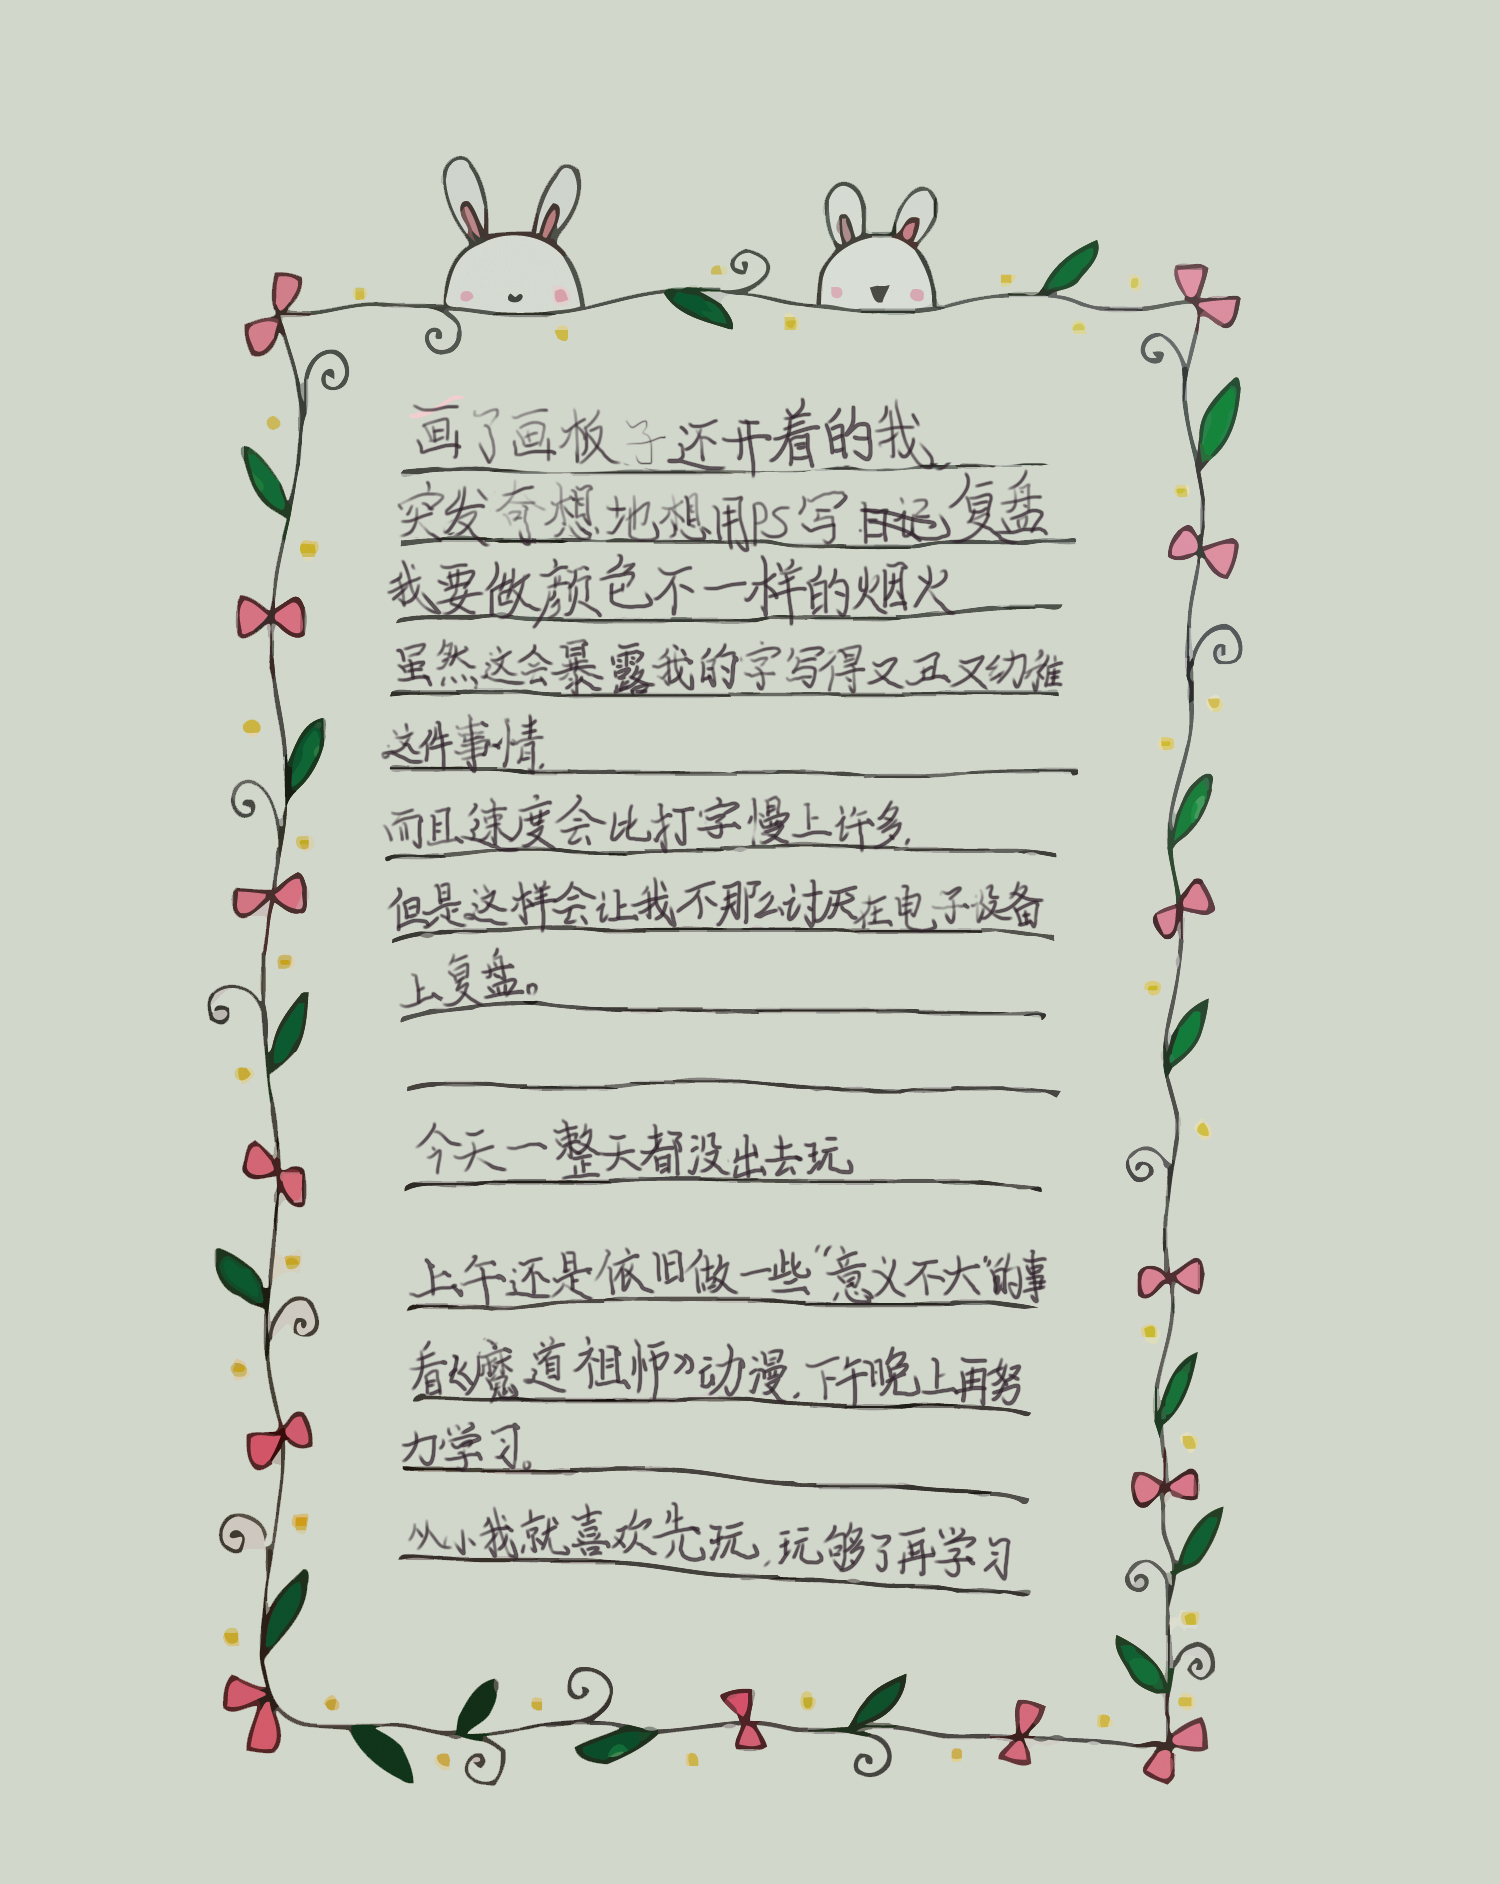 画了画板子还开着的我
突发奇想地想用PS写日记复盘
我要做颜色不一样的烟火
虽然这会暴露我的字写得又丑又幼稚
这件事情.
而且速度会比打字慢上许多.
但是这样会让我不那么讨厌在电子设备
上复盘。
今天一整天都没出去玩
上午还是依旧做一些“意义不大”的事
看《魔道祖师》动漫.下午晚上再努
力学习。
从小我就喜欢先玩,玩够了再学习